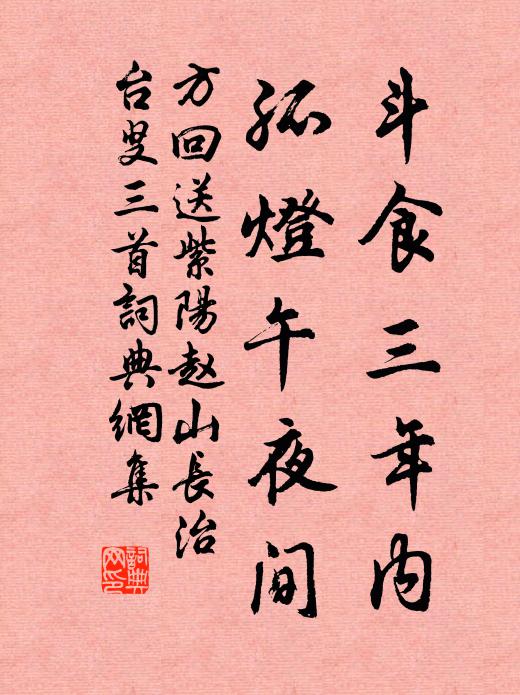 斗食三年內
孤燈午夜间
方回送紫陽赵山長治
台叟三首詞典網集
詞典
网印